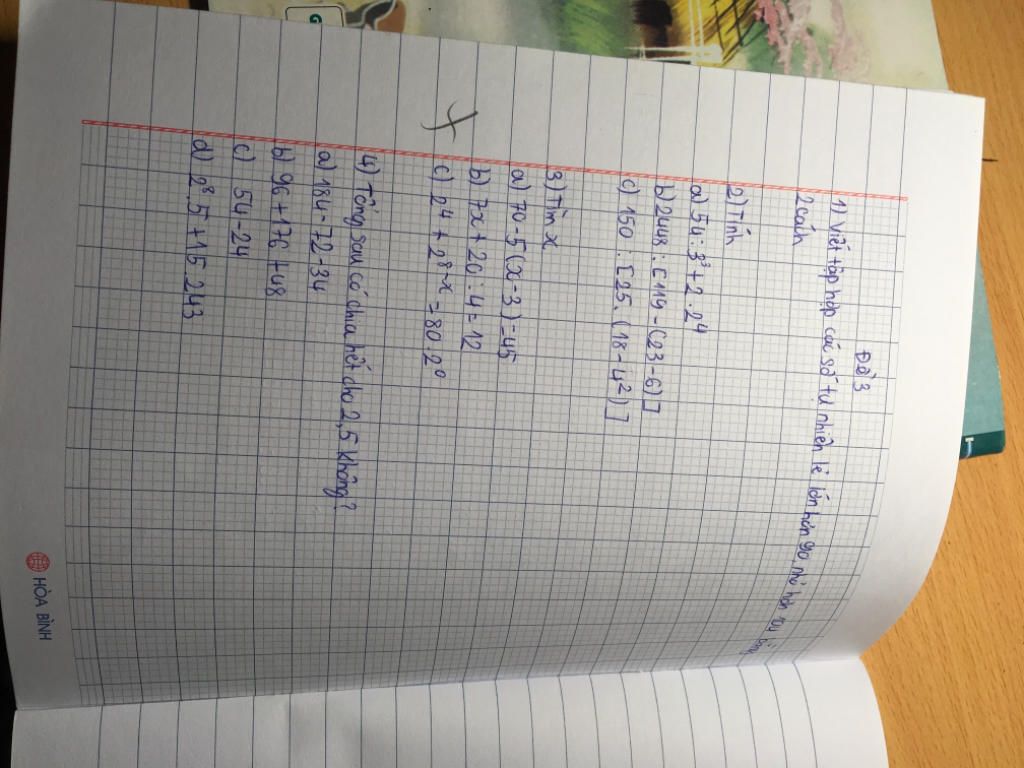 Đề 3
1) Viết tập hợp các số tự nhiên lẻ lớn hơn 90, nhỏ hơn bằng
2 cách
2) Tính
a) 54 : 3³ + 2 . 2⁴
b) 2448 : [119 - (23 - 6)]
c) 150 : [25 . (18 - 4²)]
3) Tìm x
a) 70 - 5(x - 3) = 45
b) 7x + 20 : 4 = 12
c) 2⁴ + 2⁸⁻ˣ = 80 . 2⁰
4) Tổng sau có chia hết cho 2, 5 không?
a) 184 - 72 - 34
b) 96 + 176 + 48
c) 54 - 24
d) 2⁸ . 5 + 15 . 243
HÒA BÌNH